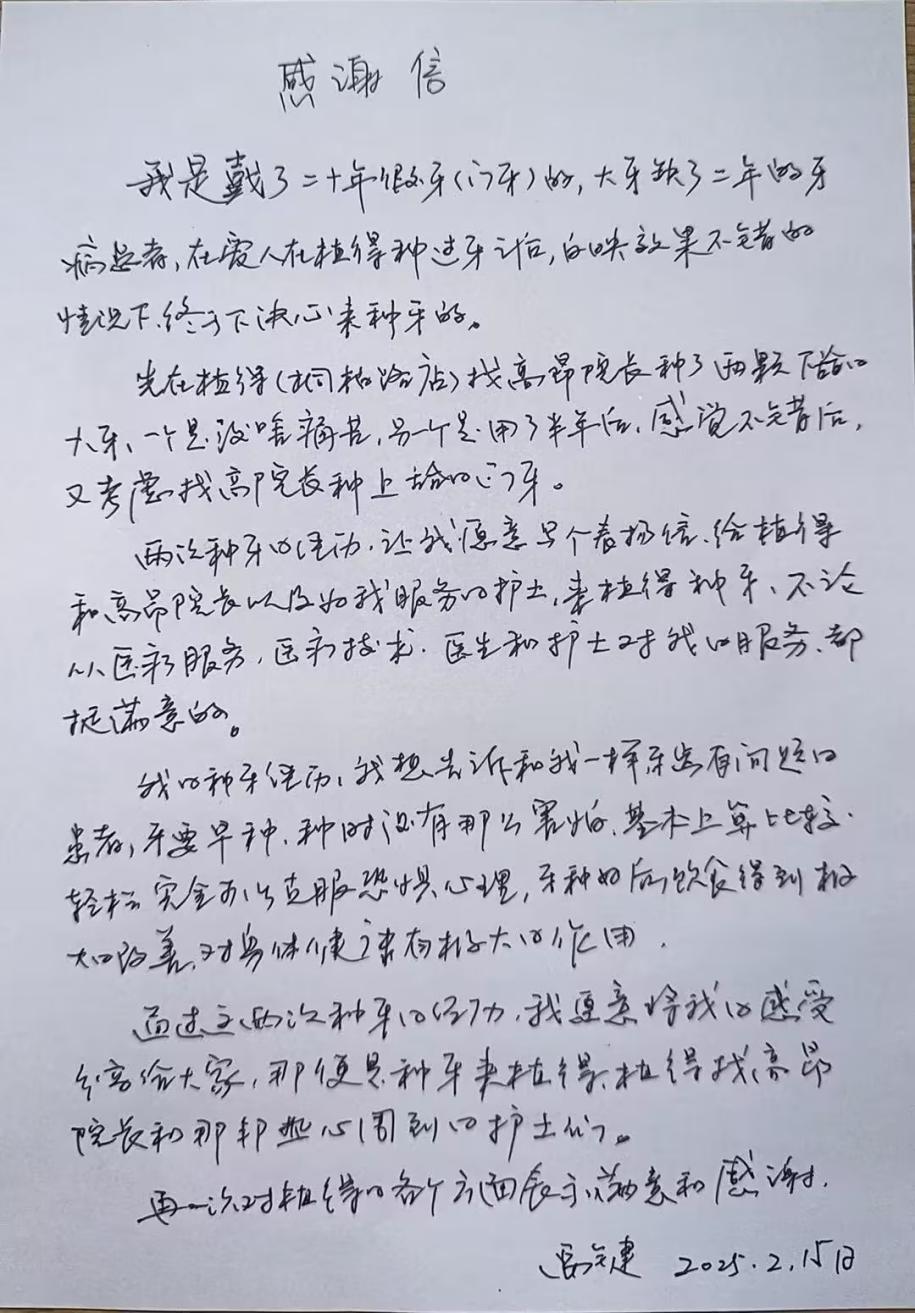 感谢信
我是戴了二十年假牙(门牙)的,大牙缺了二年的牙
病患者,在爱人在植得种过牙之后,反映效果不错的
情况下,终于下决心来种牙的。
先在植得(梧桐路店)找高昂院长种了两颗下给的
大牙,一个是没啥痛苦,另一个是用了半年后,感觉不错后,
又考虑找高院长种上给的门牙。
两次种牙的经历,让我愿意写个表扬信,给植得
和高昂院长以及为我服务的护士,来植得种牙、不论
从医疗服务,医疗技术,医生和护士对我的服务、都
挺满意的。
我的种牙经历,我想告诉和我一样牙齿有问题的
患者,牙要早种,种时没有那么害怕,基本上算比较
轻松,完全可以克服恐惧心理,牙种好后饮食得到极
大的改善,对身体健康有极大的作用.
通过这两次种牙的经历,我愿意将我的感受
分享给大家,那便是种牙来植得,植得找高昂
院长和那群热心周到的护士们。
再一次对植得的各个方面表示满意和感谢.
建 2025.2.15日